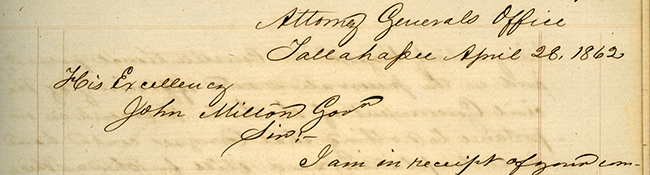 Attorney Generals Office
Tallahassee April 28, 1862
His Excellency
John Milton Govr
Sir:—
I am in receipt of your com-